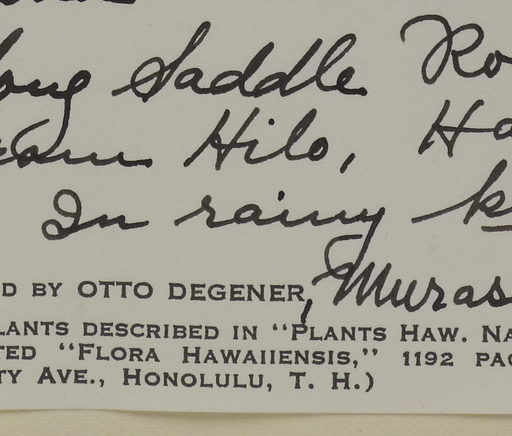 ong Saddle Ro
from Hilo, Ha
In rainy k
D BY OTTO DEGENER, Muras
LANTS DESCRIBED IN "PLANTS HAW. NA
TED "FLORA HAWAIIENSIS," 1192 PAG
TY AVE., HONOLULU, T. H.)